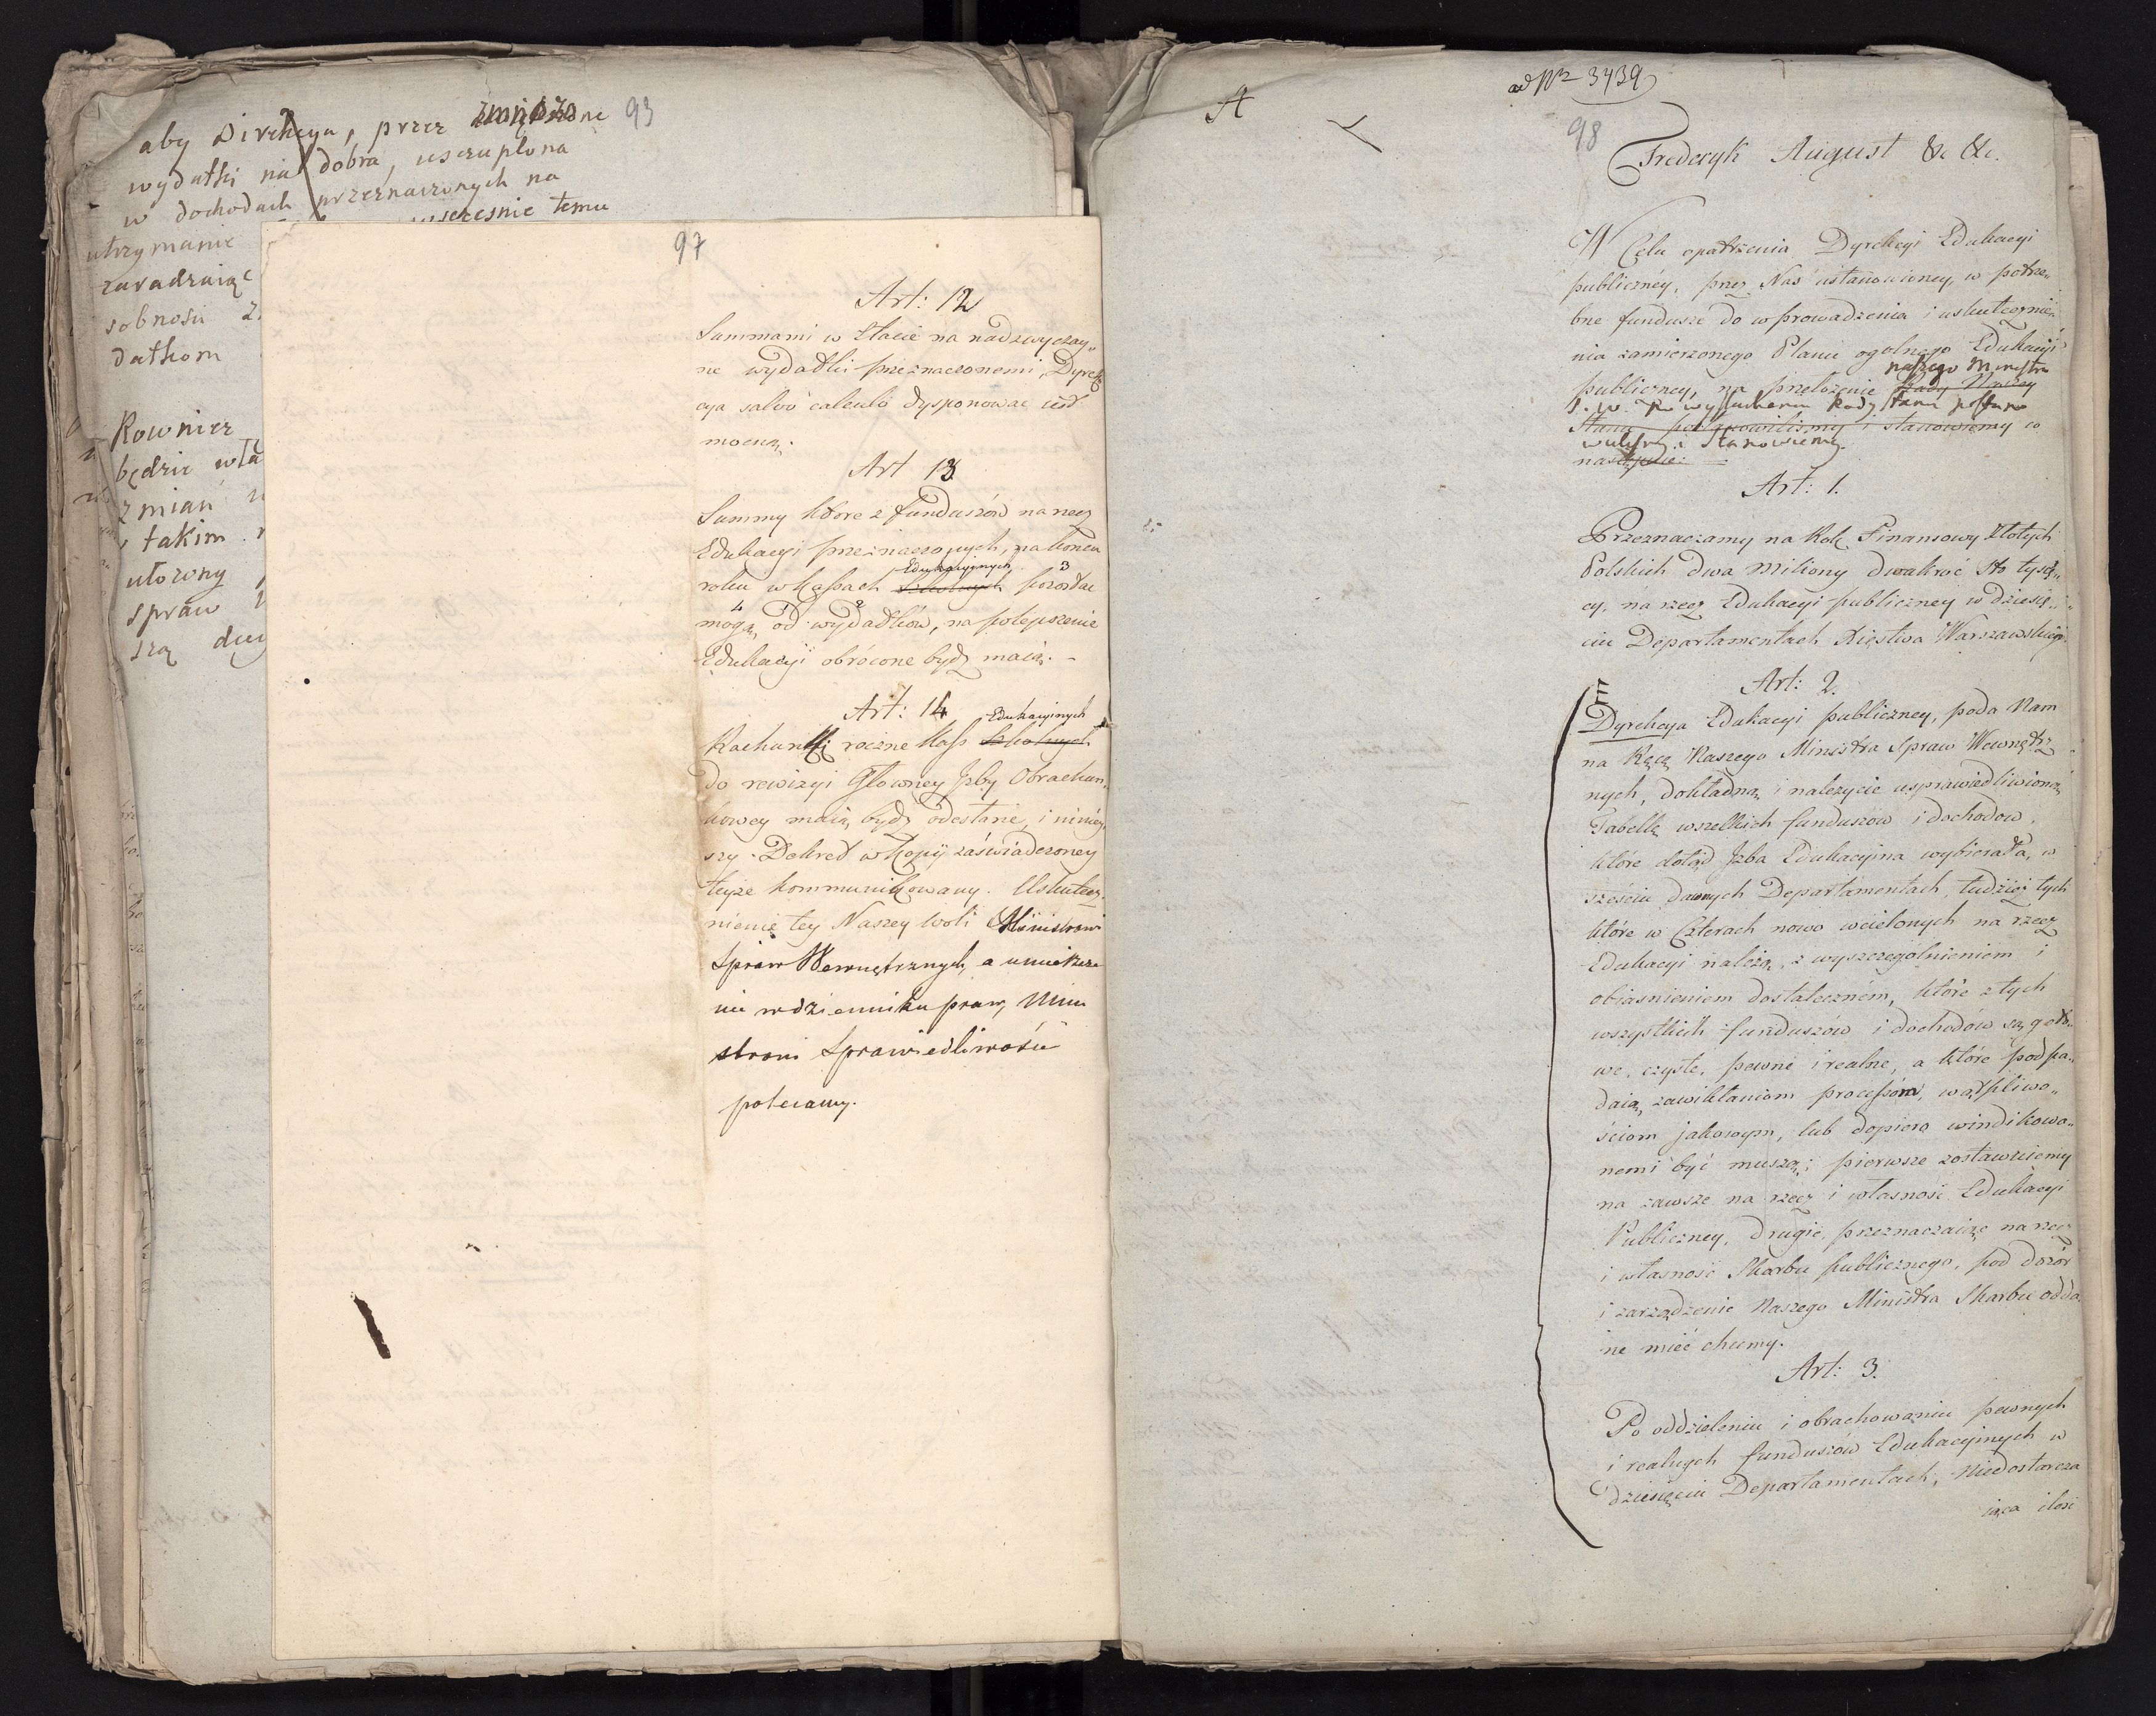 93
aby Direkcya, przez zmnieyszone
wydatki na dobra, uszczuplona
w dochodach przeznaczonych na
utrzymanie wszesnie temu
zaradzaiąc
sobnosu
datkom
Rownież
będzie wła
zmian
takim
ułożony
spraw
szą dug
97
Art: 12
Summami w Etacie na nadzwyczay„
ne wydatki przeznaczonemi, Dyrek
cya salvo calculo dysponować iest
mocną.
Art 13
Summy które z funduszów na rzecz
Edukacyi przeznaczonych, na końcu
Edukacyinych 3
roku w Kassach Szkolnych pozostac
4 2
mogą, od wydatków, na polepszenie
Edukacyi obrócone bydź maią. -
Art: 14
Edukacyinych
Rachunki roczne Kass Szkolnych
do rewizyi Głowney Jzby Obrachun„
kowey maią bydź odesłane, i ninięy„
szy Dekret w Kopii zaświadczoney
teyże kommunikowany. Uskutecz„
nienie tey Naszey woli Ministrowi
Spraw Wewnętrznych, a umieszcze
nie w dzienniku praw, Mini
strowi Sprawiedliwości
polecamy.
A
ad Nr 3439
98
Frederyk August &c &c.
W Celu opatrzenia Dyrekcyi Edukacyi
publiczney, przez Nas ustanowioney, w potrze„
bne fundusze do wprowadzenia i uskutecznie„
nia zamierzonego Planu ogolnego Edukacyi
naszego Ministra
publiczney, na przełożenie Rady Naszey
S. W. Po wysłuchaniu Rady Stanu postano
Stanu postanowiliśmy i stanowiemy co
wiliśmy i Stanowiemy.
następuie:
Art: 1.
Przeznaczamy na Rok Finansowy Złotych
Polskich dwa Miliony dwakroć sto tysię„
cy, na rzecz Edukacyi publiczney w dziesię„
ciu Departamentach Xięstwa Warszawskiego.
Art: 2.
Dyrekcya Edukacyi publiczney, poda Nam
na Ręcę Naszego Ministra Spraw Wewnętrz
nych, dokładną i należycie usprawiedliwioną
Tabellę wszelkich funduszow i dochodow,
które dotąd Jzba Edukacyina wybierała, w
sześciu dawnych Departamentach, tudzież tych
które w Czterach nowo wcielonych na rzecz
Edukacyi należą, z wyszczegolnieniem i
obiaśnieniem dostatecznem, które z tych
wszystkich funduszów i dochodów są goto„
we, czyste, pewne i realne, a które podpa„
daią, zawikłaniom processom, wątpliwo„
ściom jakowym, lub dopiero windikowa„
nemi być muszą; pierwsze zostawuiemy
na zawsze na rzecz i własność Edukacyi
Publiczney, drugie, przeznaczaiąc na rzecz
i własność Skarbu publicznego, pod dozór
i zarządzenie Naszego Ministra Skarbu odda„
ne mieć chcemy.
Art: 3.
Po oddzieleniu i obrachowaniu pewnych
i realnych funduszów Edukacyinych w
dziesięciu Departamentach, Niedostarcza
iąca ilość